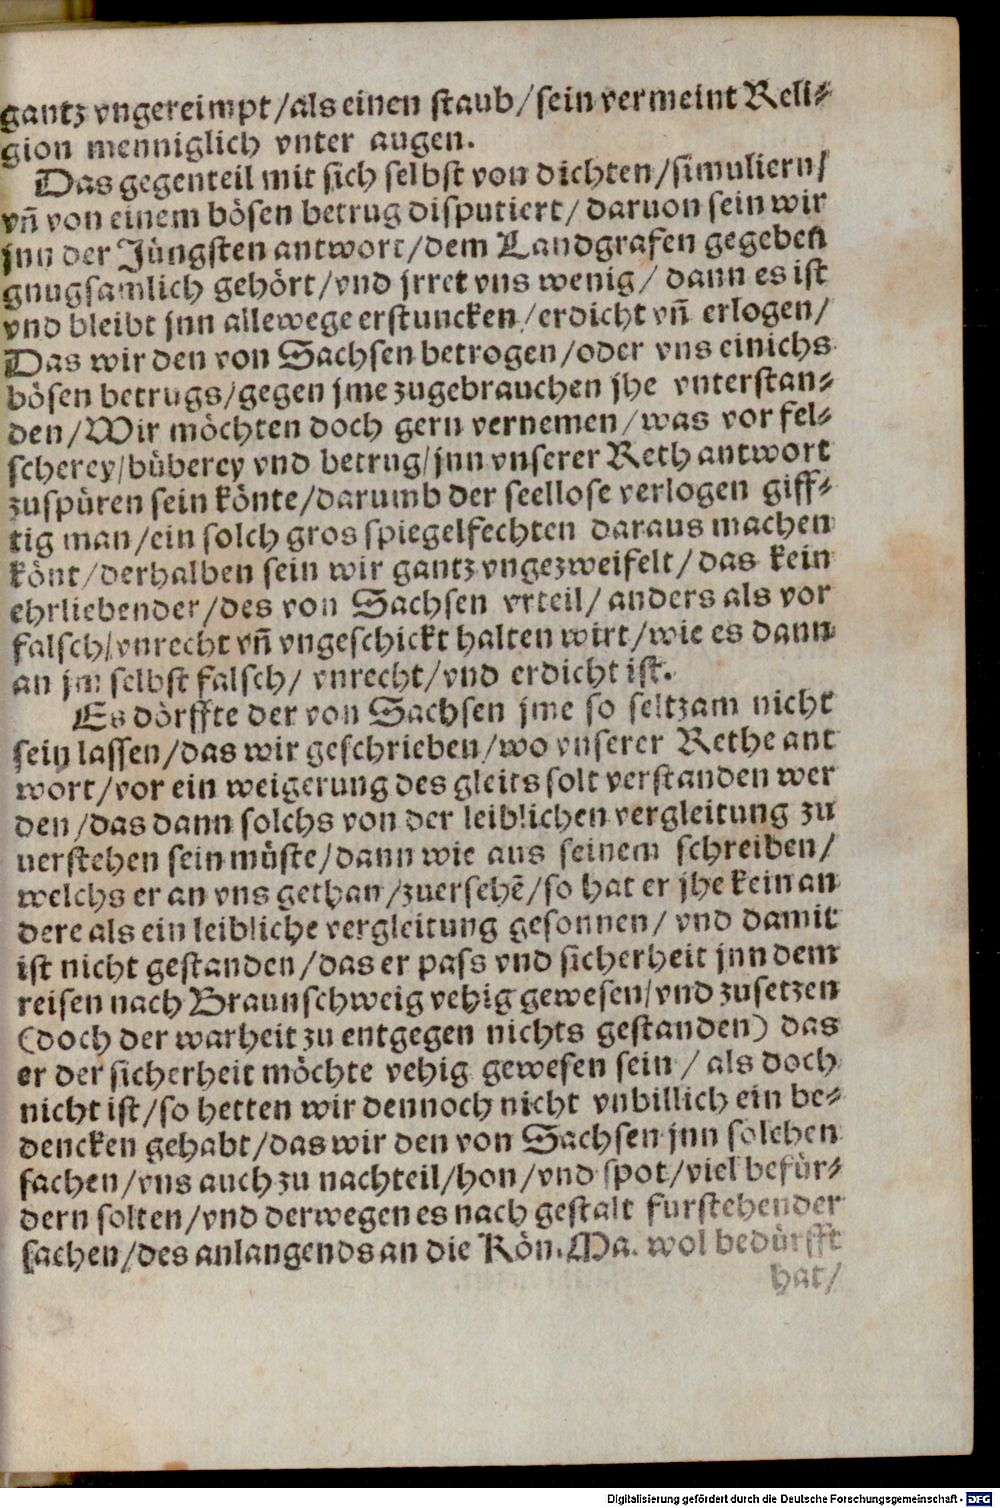 gantz vngereimpt/als einen staub/sein vermeint Reli⸗
gion menniglich vnter augen.
Das gegenteil mit sich selbst von dichten/simuliern/
vn̄ von einem bösen betrug disputiert/ daruon sein wir
jnn der Jüngsten antwort/dem Landgrafen gegeben
gnugsamlich gehört/vnd jrret vns wenig/ dann es ist
vnd bleibt jnn allewege erstuncken/erdicht vn̄ erlogen/
Das wir den von Sachsen betrogen/oder vns einichs
bösen betrugs/gegen jme zugebrauchen jhe vnterstan⸗
den/Wir möchten doch gern vernemen/was vor fel⸗
scherey/büberey vnd betrug/jnn vnserer Reth antwort
zuspüren sein könte/darumb der seellose verlogen giff⸗
tig man/ein solch gros spiegelfechten daraus machen
könt/derhalben sein wir gantz vngezweifelt/das kein
ehrliebender/des von Sachsen vrteil/anders als vor
falsch/vnrecht vn̄ vngeschickt halten wirt/wie es dann
an jm selbst falsch/ vnrecht/vnd erdicht ist.
Es dörffte der von Sachsen jme so seltzam nicht
sein lassen/das wir geschrieben/wo vnserer Rethe ant
wort/vor ein weigerung des gleits solt verstanden wer
den/das dann solchs von der leiblichen vergleitung zu
uerstehen sein müste/dann wie aus seinem schreiben/
welchs er an vns gethan/zuersehē/so hat er jhe kein an
dere als ein leibliche vergleitung gesonnen/ vnd damit
ist nicht gestanden/das er pass vnd sicherheit jnn dem
reisen nach Braunschweig vehig gewesen/vnd zusetzen
(doch der warheit zu entgegen nichts gestanden) das
er der sicherheit möchte vehig gewesen sein/ als doch
nicht ist/so hetten wir dennoch nicht vnbillich ein be⸗
dencken gehabt/das wir den von Sachsen jnn solchen
sachen/vns auch zu nachteil/hon/vnd spot/viel befür⸗
dern solten/vnd derwegen es nach gestalt furstehender
sachen/des anlangends an die Kön. Ma. wol bedürfft
hat/
Digitalisierung gefördert durch die Deutsche Forschungsgemeinschaft - DFG